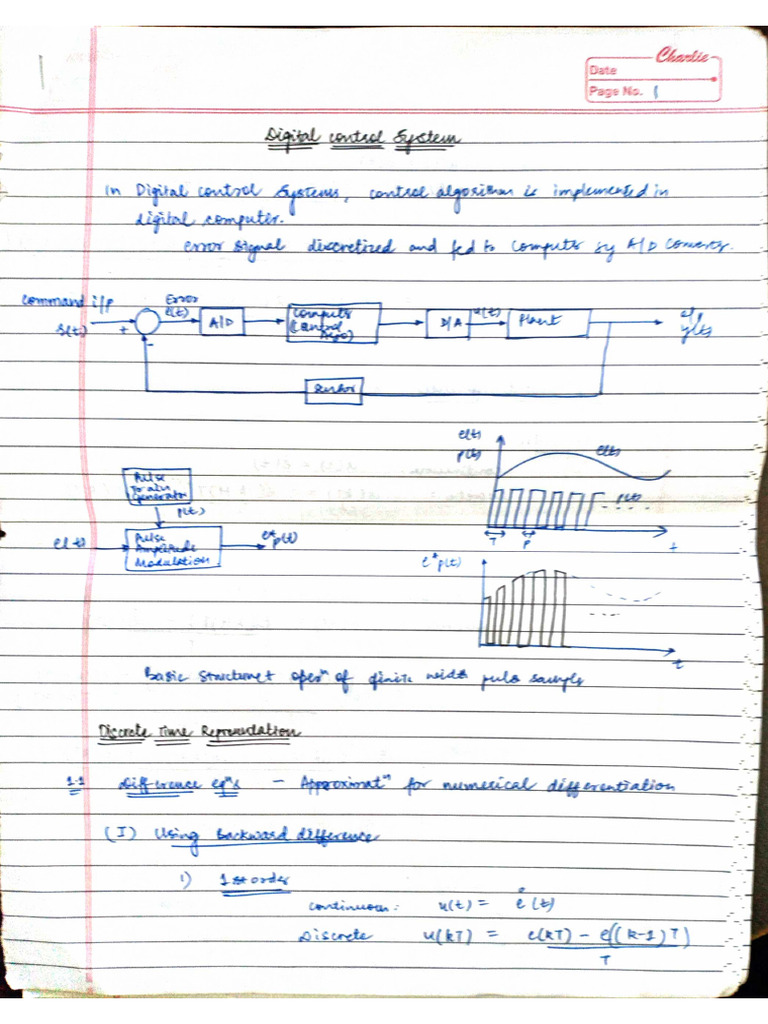 1
Charlie
Date
Page No. 1
Digital control System
In Digital control Systems, control algorithm is implemented in
digital computer.
error signal discretized and fed to computer by A/D converter.
command i/p
Error
e(t)
A/D
Computer
(Control
Algo)
D/A
u(t)
Plant
o/p
y(t)
+
-
Sensor
e(t)
p(t)
e(t)
p(t)
T
P
t
Pulse
Train
Generator
p(t)
e(t)
Pulse
Amplitude
Modulation
e*p(t)
e*p(t)
t
Basic Structure & opern of finite width pulse sampler
Discrete Time Representation
1.1 Difference eqns - Approximatn for numerical differentiation
(I) Using Backward difference
1) 1st order
continuous: u(t) = ė(t)
Discrete u(kT) = e(kT) - e((k-1)T)
T